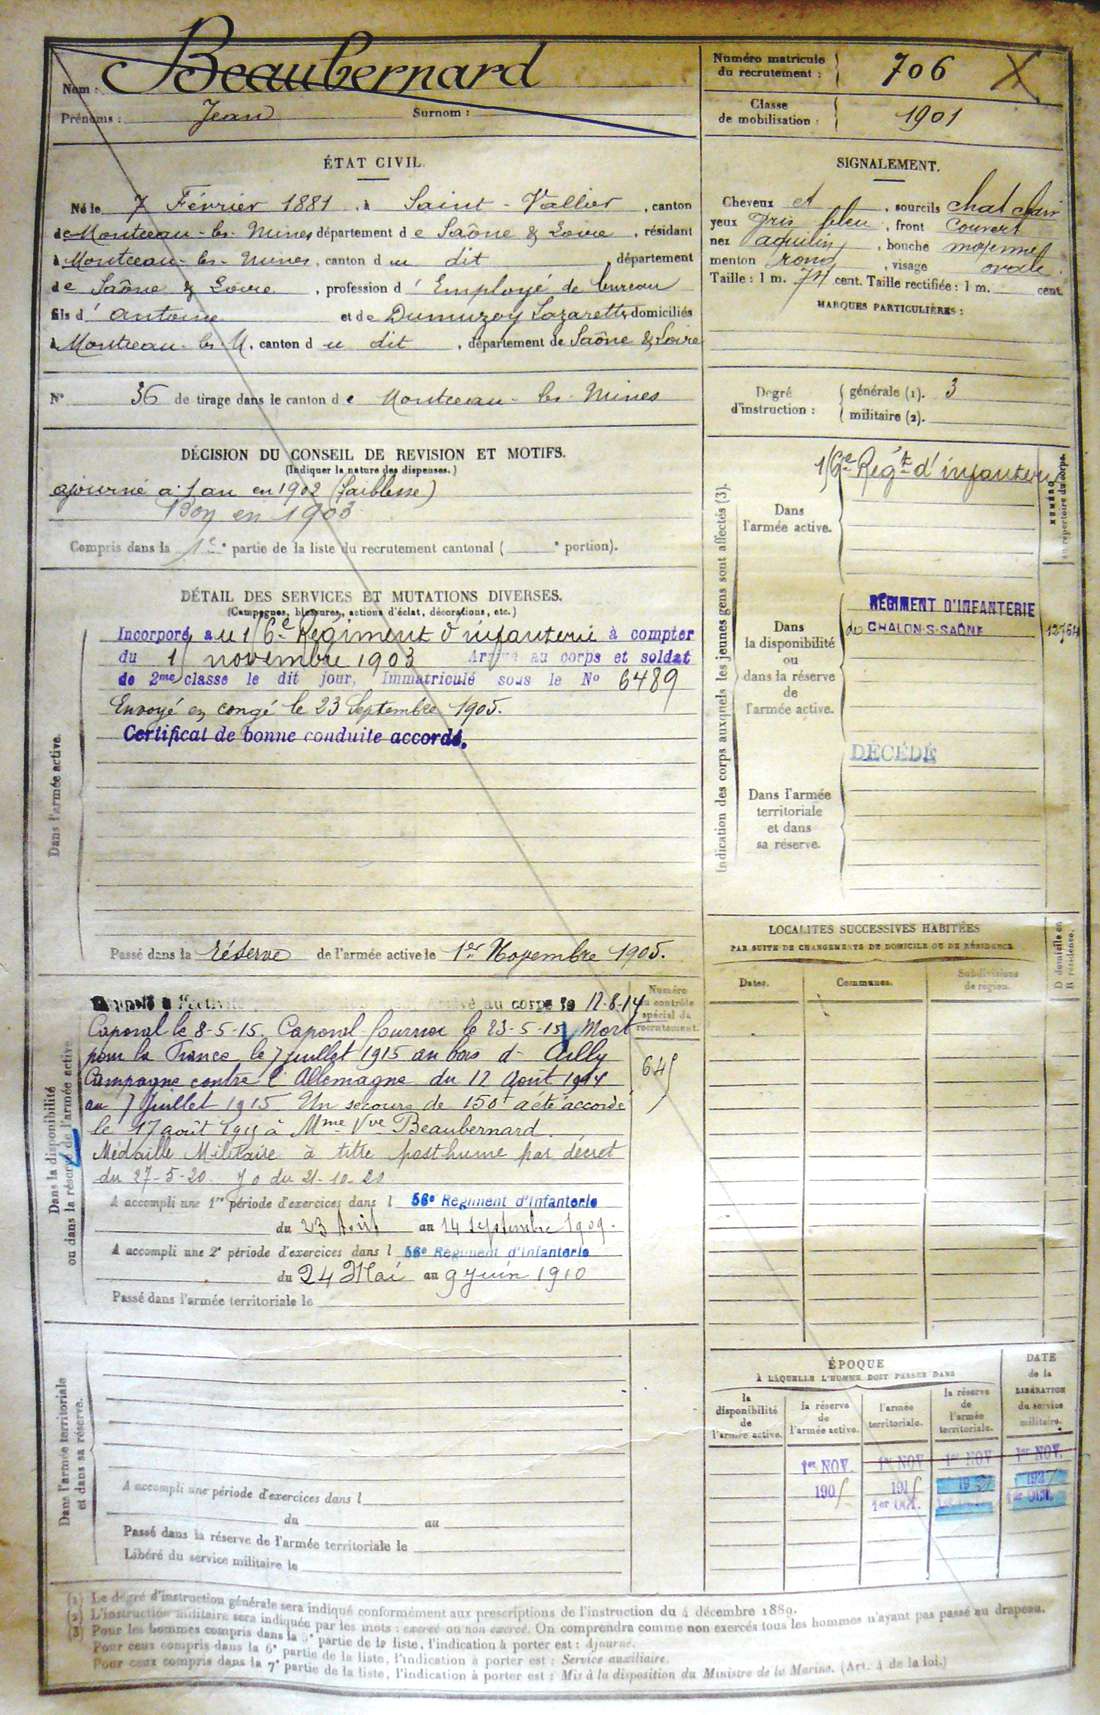 Nom : Beaubernard
Prénoms : Jean Surnom :
Numéro matricule du recrutement : 706 X
Classe de mobilisation : 1901
ÉTAT CIVIL.
Né le 7 Février 1881, à Saint-Vallier, canton
de Montceau-les-Mines département de Saône & Loire, résidant
à Montceau-les-Mines, canton du dit, département
de Saône & Loire, profession d'Employé de bureau
fils d'antoine et de Dumuzoy Lazarette domiciliés
à Montceau-les-M, canton du dit, département de Saône & Loire
N° 36 de tirage dans le canton de Montceau-les-Mines
SIGNALEMENT.
Cheveux et, sourcils chat clair
yeux gris bleu, front Couvert
nez aquilin, bouche moyenne
menton rond, visage ovale
Taille : 1 m. 74 cent. Taille rectifiée : 1 m. cent.
MARQUES PARTICULIÈRES :
Degré d'instruction : générale (1). 3
militaire (2).
DÉCISION DU CONSEIL DE REVISION ET MOTIFS.
(Indiquer la nature des dispenses.)
ajourné à 1 an en 1902 (faiblesse)
Bon en 1903
Compris dans la 1e partie de la liste du recrutement cantonal ( e portion).
DÉTAIL DES SERVICES ET MUTATIONS DIVERSES.
(Campagnes, blessures, actions d'éclat, décorations, etc.)
Dans l'armée active.
Incorporé au 16e Régiment d'infanterie à compter
du 1/ novembre 1903 Arrivé au corps et soldat
de 2me classe le dit jour, Immatriculé sous le No 6489
Envoyé en congé le 23 Septembre 1905.
Certificat de bonne conduite accordé.
Passé dans la réserve de l'armée active le 1er Novembre 1905.
Indication des corps auxquels les jeunes gens sont affectés (3).
Dans l'armée active.
16e Régt d'infanterie
NUMÉRO au répertoire du corps.
Dans la disponibilité ou dans la réserve de l'armée active.
RÉGIMENT D'INFANTERIE
de CHALON-S-SAÔNE
DÉCÉDÉ
Dans l'armée territoriale et dans sa réserve.
LOCALITÉS SUCCESSIVES HABITÉES
PAR SUITE DE CHANGEMENTS DE DOMICILE OU DE RÉSIDENCE
Dates. Communes. Subdivisions de région. D domicile ou R résidence.
Dans la disponibilité ou dans la réserve de l'armée active
Numéro au contrôle spécial du recrutement.
645
Rappelé à l'activité Arrivé au corps le 12-8-14
Caporal le 8-5-15. Caporal-fourrier le 23-5-15 Mort
pour la France le 7 juillet 1915 au bois d'Ailly
Campagne contre l'Allemagne du 12 Août 1914
au 7 Juillet 1915. Un secours de 150f a été accordé
le 17 août 1915 à Mme Vve Beaubernard.
Médaille Militaire à titre posthume par décret
du 27-5-20. J O du 21-10-20
A accompli une 1re période d'exercices dans l 56e Régiment d'Infanterie
du 23 Août au 14 septembre 1909.
A accompli une 2e période d'exercices dans l 56e Régiment d'Infanterie
du 24 Mai au 9 juin 1910
Passé dans l'armée territoriale le
Dans l'armée territoriale et dans sa réserve.
A accompli une période d'exercices dans l
du au
Passé dans la réserve de l'armée territoriale le
Libéré du service militaire le
ÉPOQUE
À LAQUELLE L'HOMME DOIT PASSER DANS
DATE de la LIBÉRATION du service militaire.
la disponibilité de l'armée active. la réserve de l'armée active. l'armée territoriale. la réserve de l'armée territoriale.
1er NOV. 1er NOV 1er NOV 1er NOV.
1905
1er OCT. 1er OCT.
(1) Le degré d'instruction générale sera indiqué conformément aux prescriptions de l'instruction du 4 décembre 1889.
(2) L'instruction militaire sera indiquée par les mots : exercé ou non exercé. On comprendra comme non exercés tous les hommes n'ayant pas passé au drapeau.
(3) Pour les hommes compris dans la 5e partie de la liste, l'indication à porter est : Ajourné.
Pour ceux compris dans la 6e partie de la liste, l'indication à porter est : Service auxiliaire.
Pour ceux compris dans la 7e partie de la liste, l'indication à porter est : Mis à la disposition du Ministre de la Marine. (Art. 4 de la loi.)